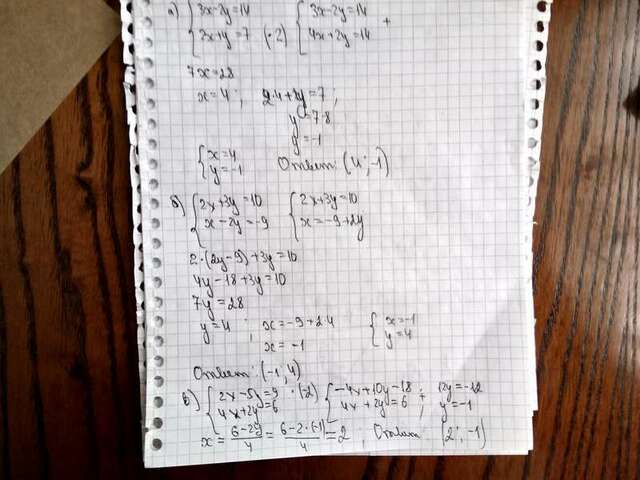 а) { 3x-2y=14 { 3x-2y=14 +
2x+y=7 (·2) 4x+2y=14
7x=28
x=4 ; 2·4+y=7 ;
y=7-8
y=-1
{ x=4
y=-1 Ответ: (4 ; -1)
б) { 2x+3y=10 { 2x+3y=10
x-2y=-9 x=-9+2y
2·(2y-9)+3y=10
4y-18+3y=10
7y=28
y=4 ; x=-9+2·4 { x=-1
x=-1 y=4
Ответ: (-1 ; 4)
в) { 2x-5y=9 ·(-2) { -4x+10y=-18 ; + 12y=-12
4x+2y=6 4x+2y=6 y=-1
x = 6-2y/4 = 6-2·(-1)/4 = 2 ; Ответ (2 ; -1)